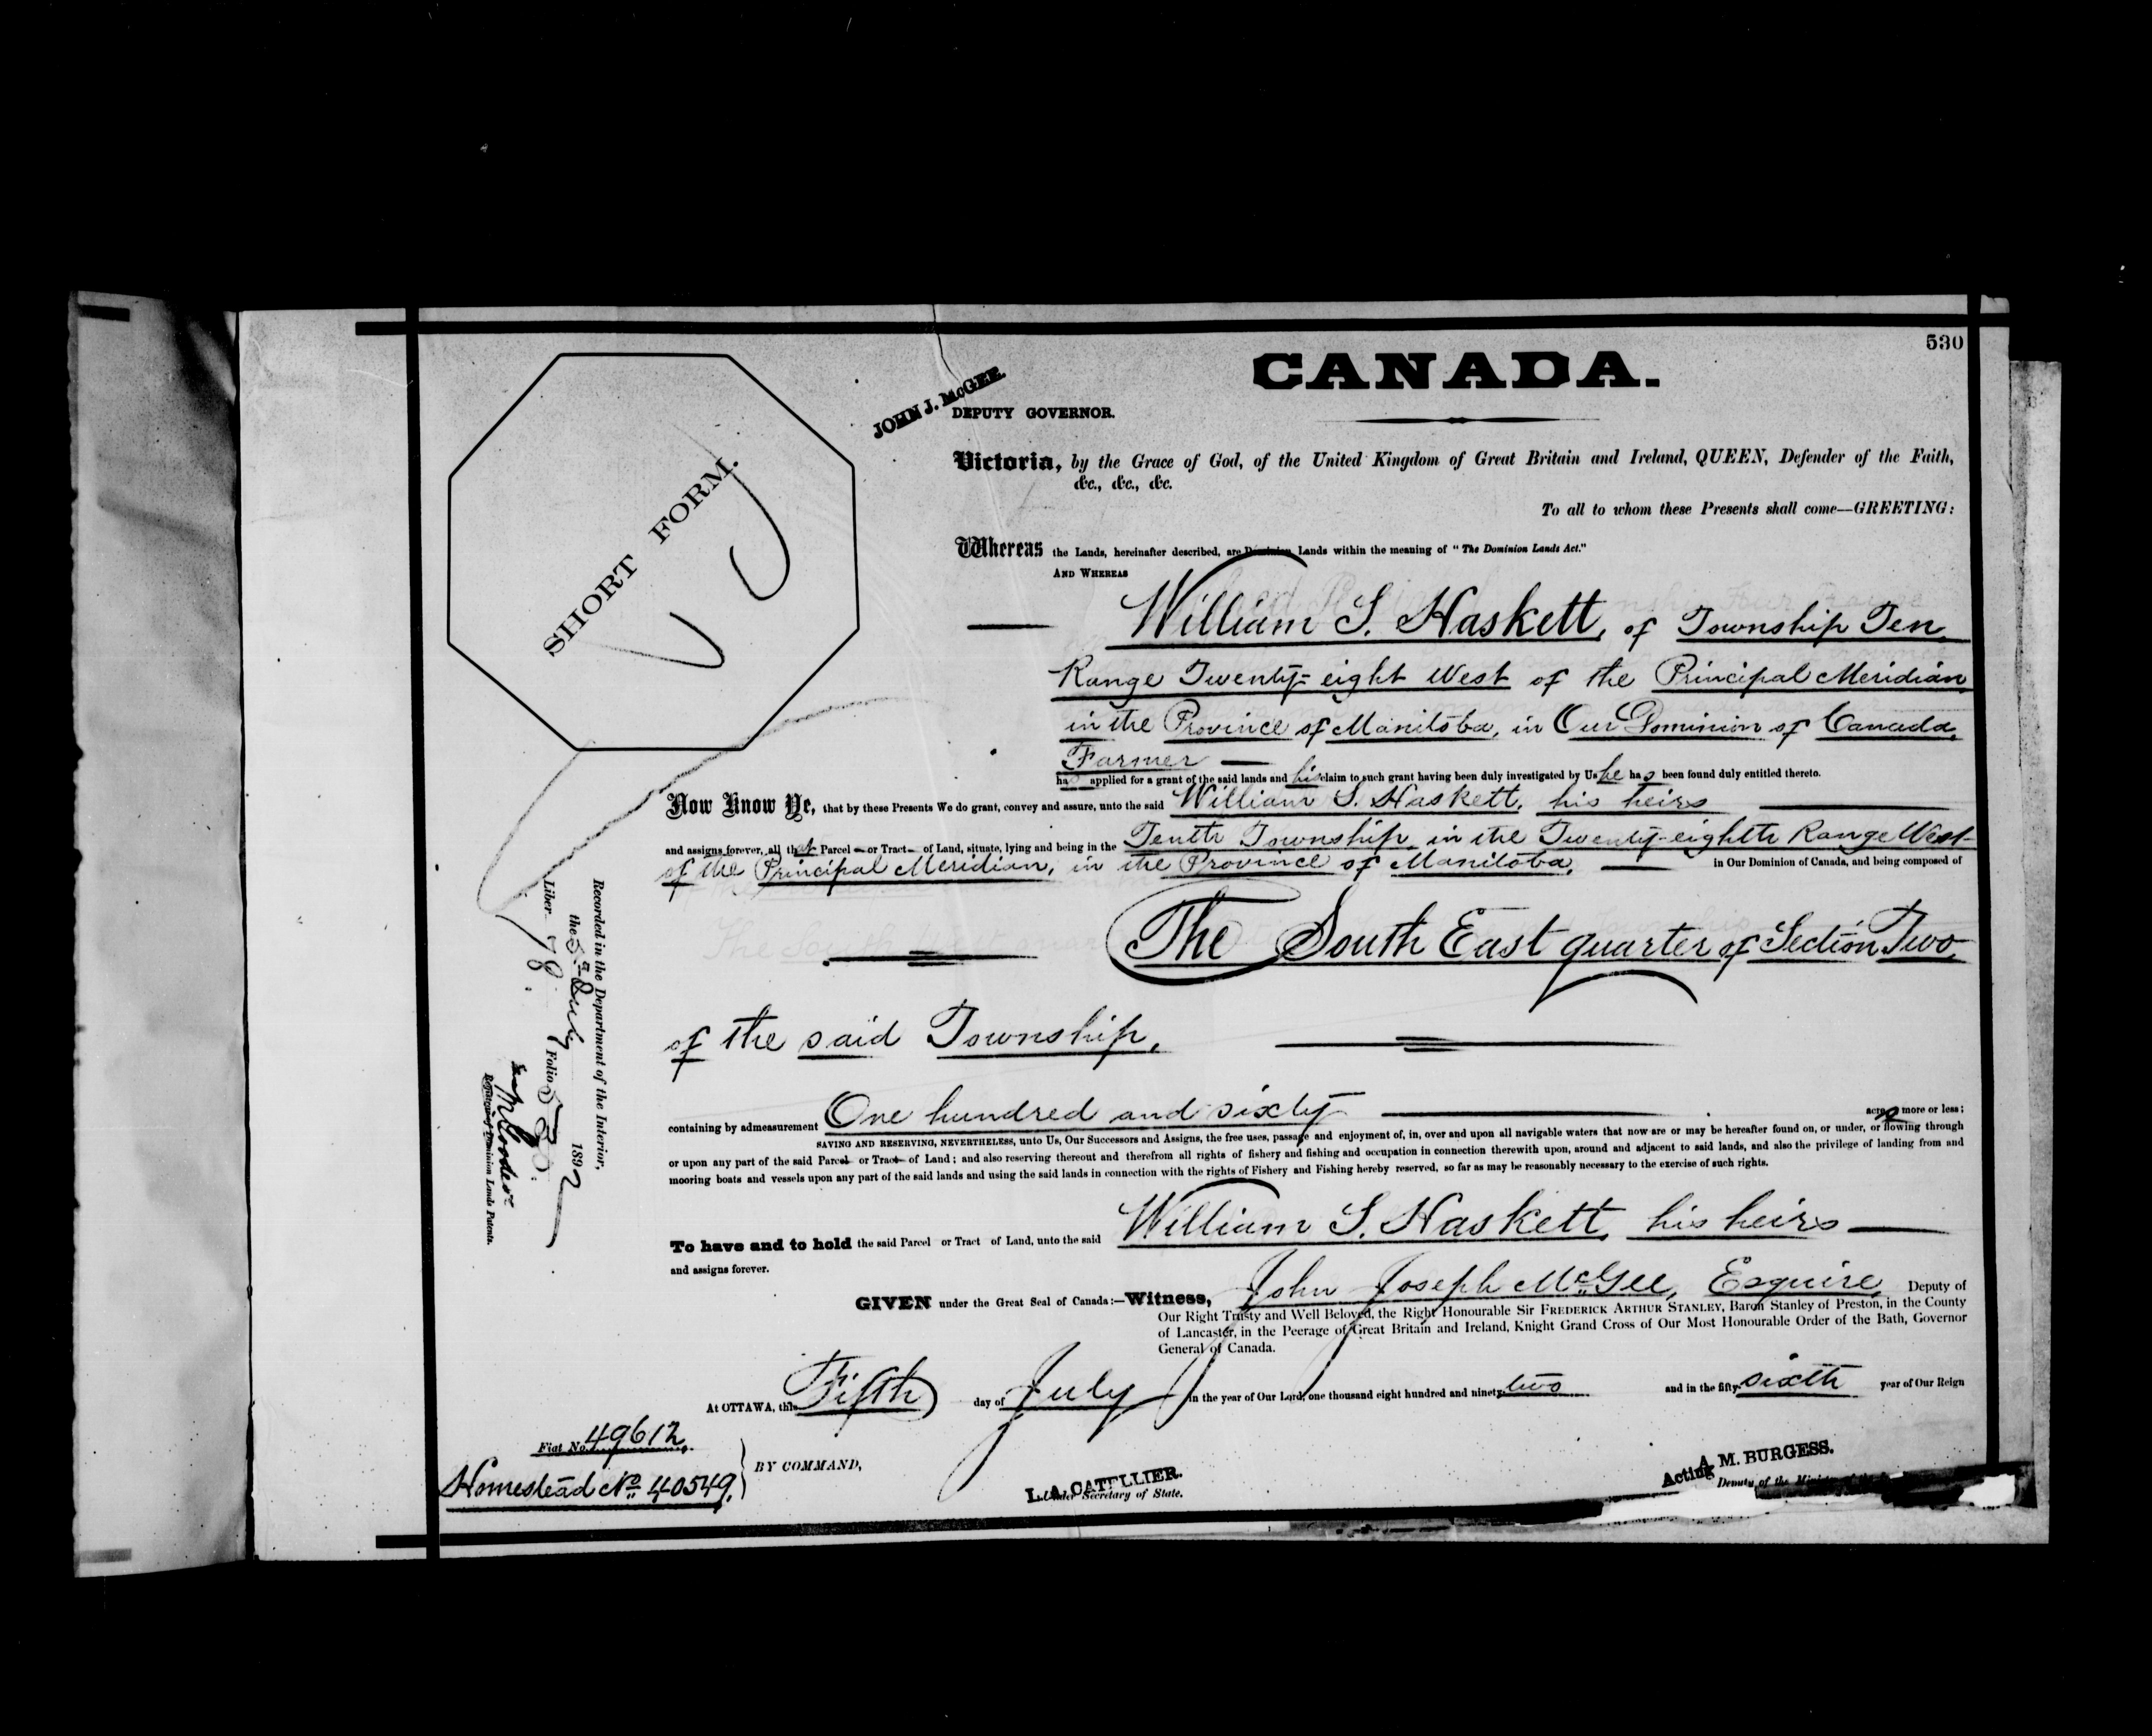 530
CANADA.
JOHN J. McGEE.
DEPUTY GOVERNOR.
SHORT FORM.
Victoria, by the Grace of God, of the United Kingdom of Great Britain and Ireland, QUEEN, Defender of the Faith,
&c., &c., &c.
To all to whom these Presents shall come—GREETING:
Whereas the Lands, hereinafter described, are Dominion Lands within the meaning of "The Dominion Lands Act."
AND WHEREAS
William S. Haskett, of Township Ten
Range Twenty-eight West of the Principal Meridian,
in the Province of Manitoba, in Our Dominion of Canada,
Farmer
has applied for a grant of the said lands and his claim to such grant having been duly investigated by Us he has been found duly entitled thereto.
Now Know Ye, that by these Presents We do grant, convey and assure, unto the said William S. Haskett, his heirs
and assigns forever, all that Parcel or Tract of Land, situate, lying and being in the Tenth Township, in the Twenty-eighth Range West
of the Principal Meridian, in the Province of Manitoba, in Our Dominion of Canada, and being composed of
The South East quarter of Section Two,
of the said Township,
containing by admeasurement One hundred and sixty acres more or less;
SAVING AND RESERVING, NEVERTHELESS, unto Us, Our Successors and Assigns, the free uses, passage and enjoyment of, in, over and upon all navigable waters that now are or may be hereafter found on, or under, or flowing through
or upon any part of the said Parcel or Tract of Land; and also reserving thereout and therefrom all rights of fishery and fishing and occupation in connection therewith upon, around and adjacent to said lands, and also the privilege of landing from and
mooring boats and vessels upon any part of the said lands and using the said lands in connection with the rights of Fishery and Fishing hereby reserved, so far as may be reasonably necessary to the exercise of such rights.
To have and to hold the said Parcel or Tract of Land, unto the said William S. Haskett, his heirs
and assigns forever.
GIVEN under the Great Seal of Canada:—Witness, John Joseph McGee, Esquire, Deputy of
Our Right Trusty and Well Beloved, the Right Honourable Sir FREDERICK ARTHUR STANLEY, Baron Stanley of Preston, in the County
of Lancaster, in the Peerage of Great Britain and Ireland, Knight Grand Cross of Our Most Honourable Order of the Bath, Governor
General of Canada.
At OTTAWA, this Fifth day of July in the year of Our Lord, one thousand eight hundred and ninety-two and in the fifty-sixth year of Our Reign
Fiat No. 49612.
Homestead No 40549.
BY COMMAND,
L. A. CATELLIER.
Under Secretary of State.
A. M. BURGESS.
Acting
Deputy of the Minister of the
Recorded in the Department of the Interior,
the 5th July 1892
Liber 78. Folio 530.
Registrar of Dominion Lands Patents.